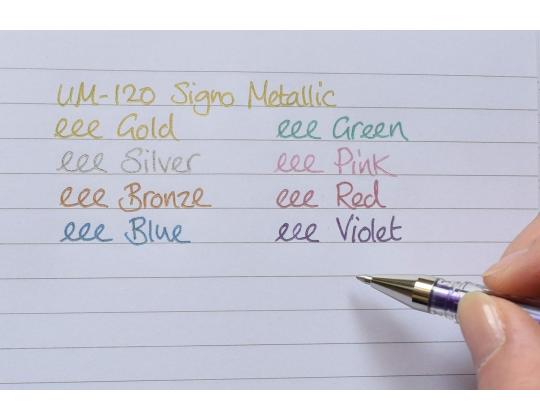 UM-120 Signo Metallic
eee Gold eee Green
eee Silver eee Pink
eee Bronze eee Red
eee Blue eee Violet